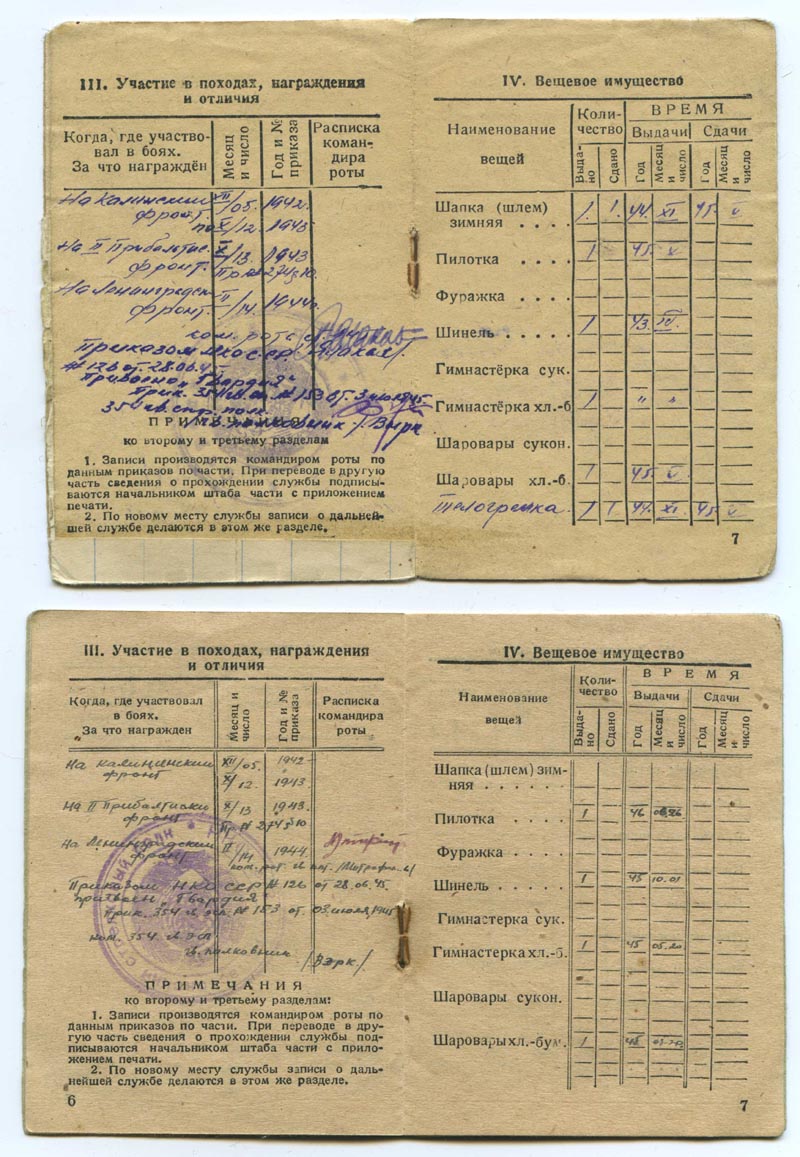 III. Участие в походах, награждения
и отличия
Когда, где участво-
вал в боях.
За что награждён
Месяц
и число
Год и №
приказа
Расписка
коман-
дира
роты
На Калинский XII/05. 1942г.
фронт. по X/12. 1943
На II Прибалтис. X/13. 1943
фронт.
На Ленинградск II/14. 1944г.
фронт.
ком. роты
Приказом НКО СССР
№ 126 от 28.06.45
Присвоено „Гвардия“
Прик. 354 № 153 от 3 июля 45
354 гв. стр. полк.
полковник / Вырк
ПРИМЕЧАНИЯ
ко второму и третьему разделам
1. Записи производятся командиром роты по
данным приказов по части. При переводе в другую
часть сведения о прохождении службы подписы-
ваются начальником штаба части с приложением
печати.
2. По новому месту службы записи о дальней-
шей службе делаются в этом же разделе.
IV. Вещевое имущество
Наименование
вещей
Коли-
чество
ВРЕМЯ
Выдачи Сдачи
Выда-
но
Сдано
Год
Месяц
и
число
Год
Месяц
и
число
Шапка (шлем)
зимняя . . . . 1 1. 44. XI 45. V
Пилотка . . . . 1 45. V
Фуражка . . . .
Шинель . . . . 1 43 IV.
Гимнастёрка сук.
Гимнастёрка хл.-б 1 " "
Шаровары сукон.
Шаровары хл.-б. 1 45. V
Телогрейка. 1 1. 44. XI 45. V
7
III. Участие в походах, награждения
и отличия
Когда, где участвовал
в боях.
За что награжден
Месяц и
число
Год и №
приказа
Расписка
командира
роты
На Калининский XII/05. 1942-
фронт X/12. 1943
На II Прибалтиски X/13 1943.
фронт
На Ленинградский II/14 1944
фронт
Приказом НКО СССР № 126 от 28.06.45.
присвоен „Гвардия“
Прик. 354 № 153 от. 03 июля, 1945
ком. 354
гв. полковник /Вэрк/
ПРИМЕЧАНИЯ
ко второму и третьему разделам:
1. Записи производятся командиром роты по
данным приказов по части. При переводе в дру-
гую часть сведения о прохождении службы под-
писываются начальником штаба части с прило-
жением печати.
2. По новому месту службы записи о даль-
нейшей службе делаются в этом же разделе.
6
IV. Вещевое имущество
Наименование
вещей
Коли-
чество
ВРЕМЯ
Выдачи Сдачи
Выда-
но
Сдано
Год
Месяц
и
число
Год
Месяц
и
число
Шапка (шлем) зим-
няя . . . . . .
Пилотка . . . . 1 46
Фуражка . . . .
Шинель . . . . 1 45 10.01
Гимнастерка сук.
Гимнастерка хл.-б. 1 45 05.20
Шаровары сукон.
Шаровары хл.-бум. 1 45
7